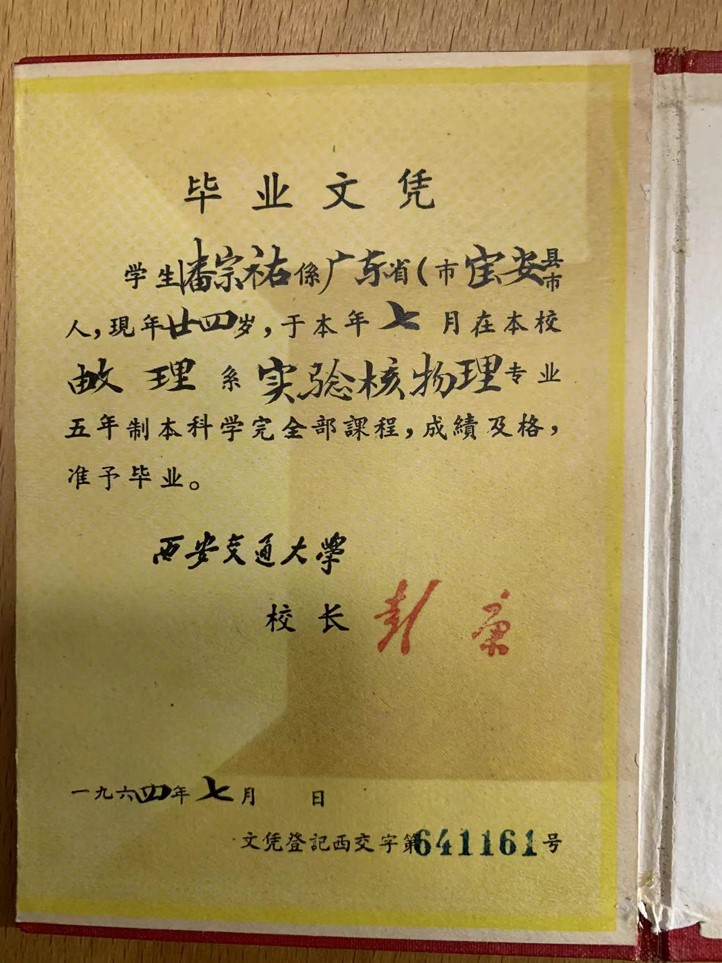 毕业文凭
学生潘宗祐係广东省(市宝安县市
人,現年廿四岁,于本年七月在本校
理系实验核物理专业
五年制本科学完全部課程,成績及格,
准予毕业。
西安交通大学
校长 彭康
一九六四年七月 日
文凭登記西交字第641161号